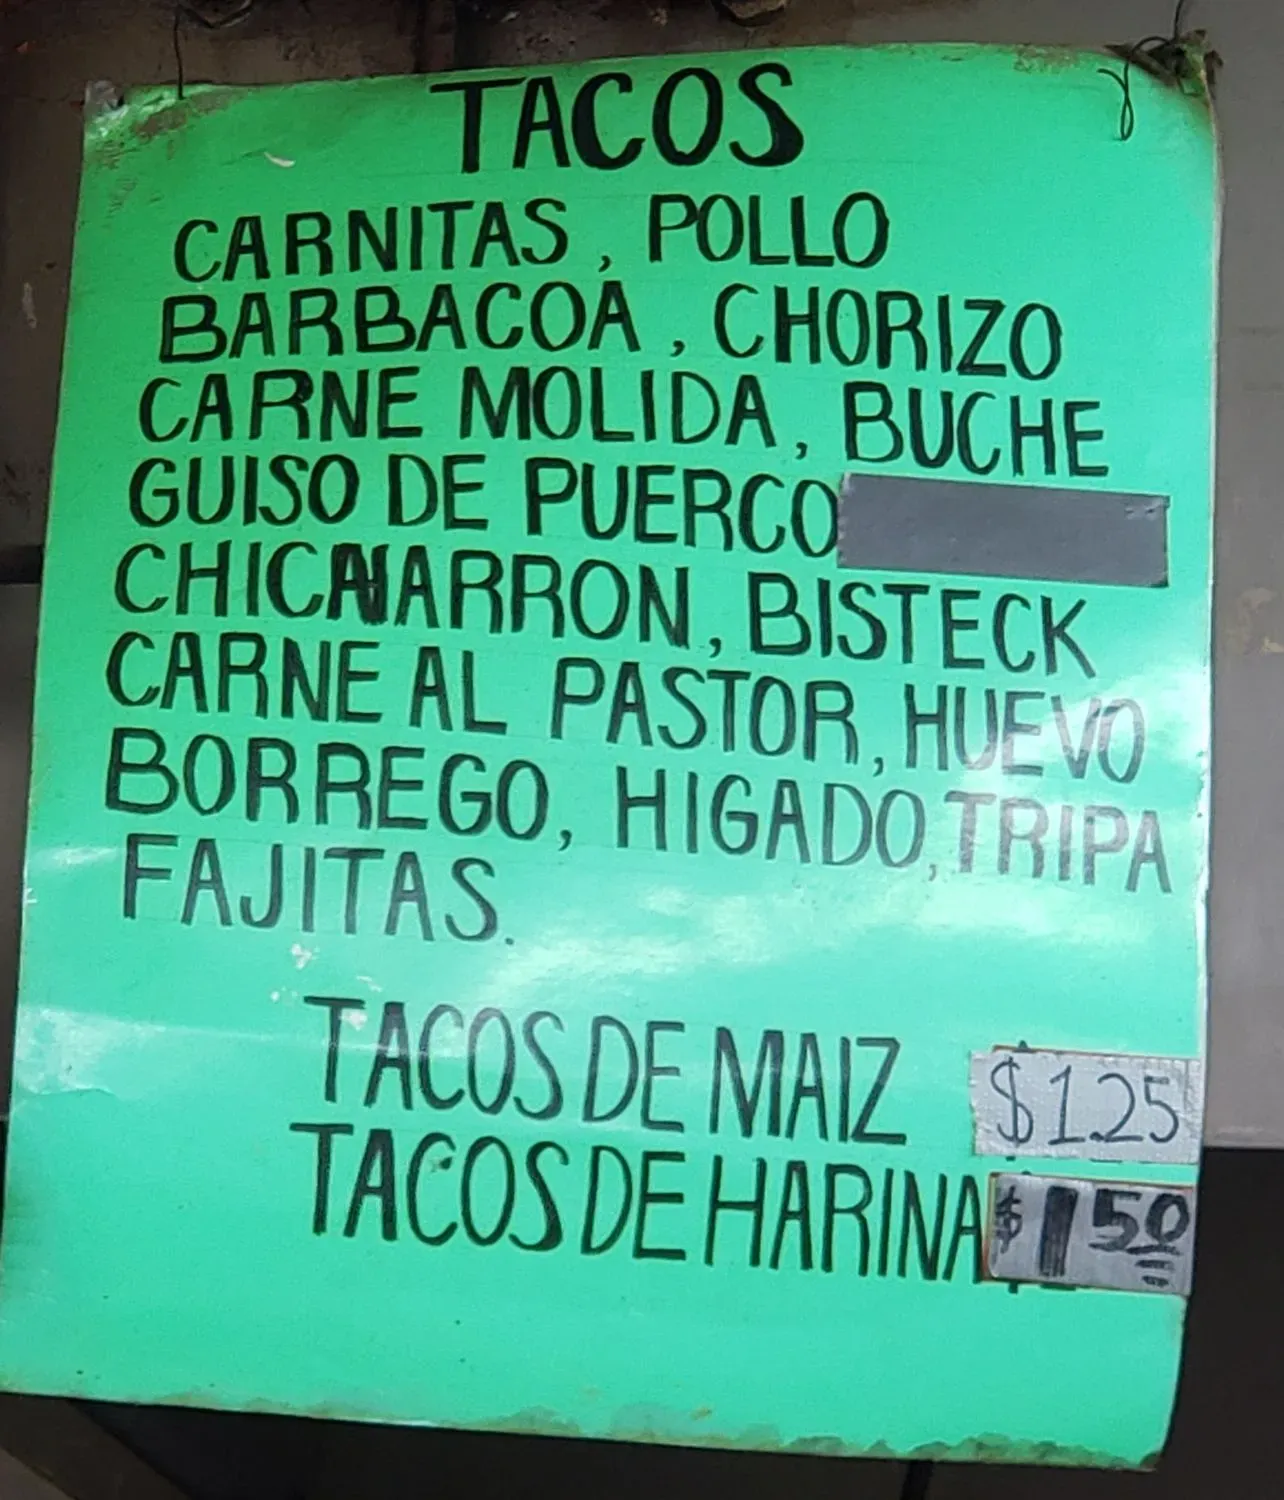 TACOS
CARNITAS, POLLO
BARBACOA, CHORIZO
CARNE MOLIDA, BUCHE
GUISO DE PUERCO
CHICHARRON, BISTECK
CARNE AL PASTOR, HUEVO
BORREGO, HIGADO, TRIPA
FAJITAS.
TACOS DE MAIZ $1.25
TACOS DE HARINA $1 50